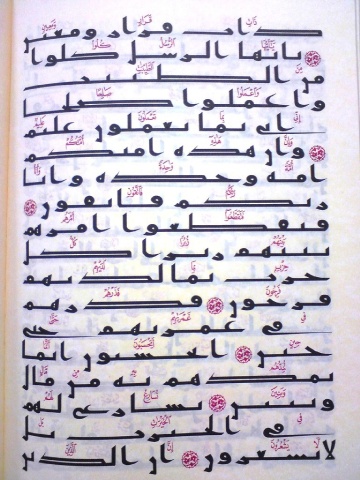 ذات قرار ومعين
۝ يايها الرسل كلوا
من الطيبت
واعملوا صلحا
اني بما تعملون عليم
۝ وان هذه امتكم
امة وحدة وانا
ربكم فاتقون ۝
فتقطعوا امرهم
بينهم زبرا كل
حزب بما لديهم
فرحون ۝ فذرهم
في غمرتهم حتى
حين ۝ ايحسبون انما
نمدهم به من مال
وبنين ۝ نسارع لهم
في الخيرت بل
لا يشعرون ۝ ان الذين